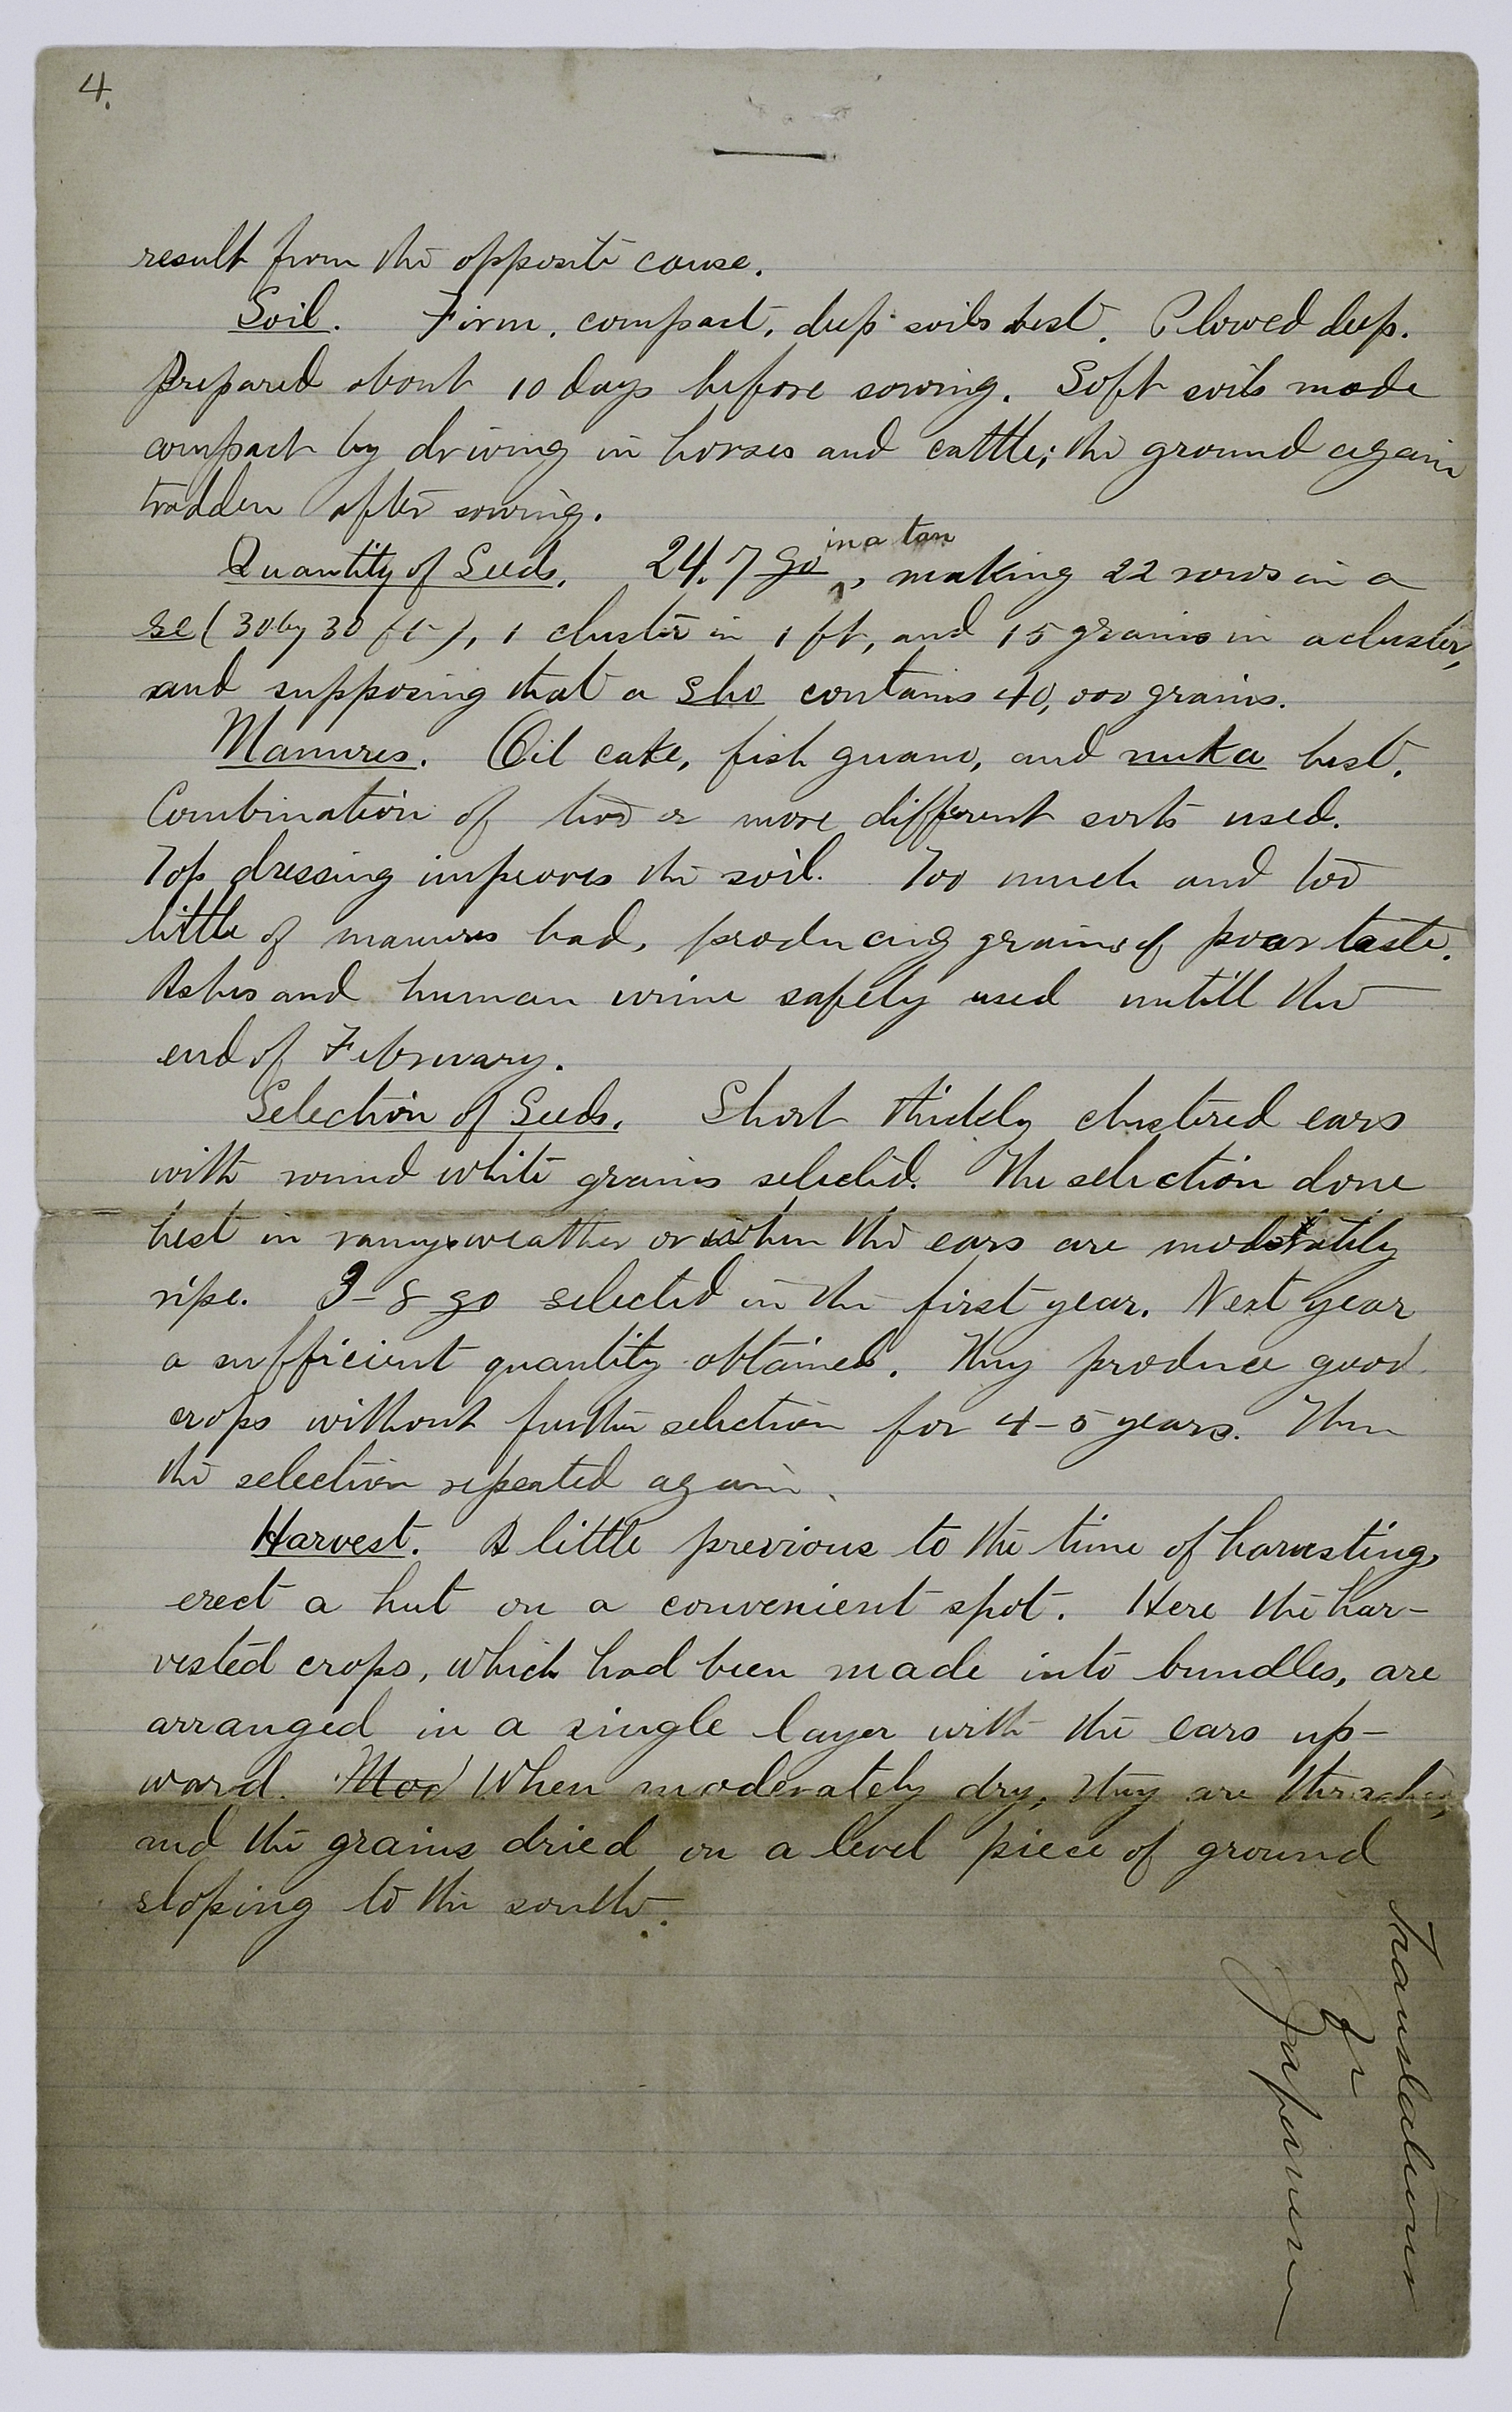 4.
result from the opposite cause.
Soil. Firm, compact, deep soils best. Plowed deep.
Prepared about 10 days before sowing. Soft soils made
compact by driving in horses and cattle; the ground again
trodden after sowing.
Quantity of Seeds. 24.7 go in a tan, making 22 rows in a
se (30 by 30 ft), 1 cluster in 1 ft, and 15 grains in a cluster,
and supposing that a sho contains 40,000 grains.
Manures. Oil cake, fish guano, and nuka best.
Combination of two or more different sorts used.
Top dressing improves the soil. Too much and too
little of manures bad, producing grains of poor taste.
Ashes and human urine safely used untill the
end of February.
Selection of Seeds. Short thickly clustered ears
with round white grains selected. The selection done
best in rainy weather or when the ears are moderately
ripe. 3-8 go selected in the first year. Next year
a sufficient quantity obtained. They produce good
crops without further selection for 4-5 years. Then
the selection repeated again.
Harvest. A little previous to the time of harvesting,
erect a hut on a convenient spot. Here the har-
vested crops, which had been made into bundles, are
arranged in a single layer with the ears up-
ward. Mod When moderately dry, they are thrashed,
and the grains dried on a level piece of ground
sloping to the south.
Translations
Japanese